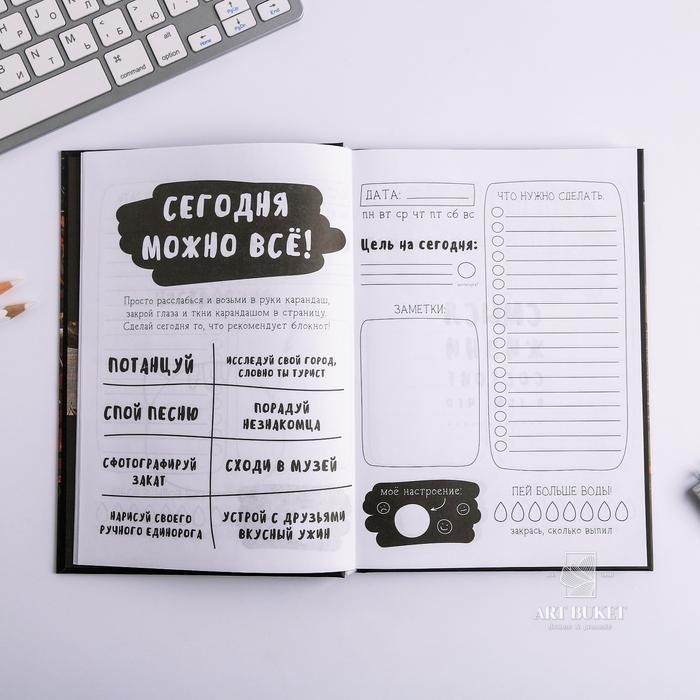 command
alt
option
Home
PgUp
PgDn
End
СЕГОДНЯ
МОЖНО ВСЁ!
Просто расслабься и возьми в руки карандаш,
закрой глаза и ткни карандашом в страницу.
Сделай сегодня то, что рекомендует блокнот!
ПОТАНЦУЙ
ИССЛЕДУЙ СВОЙ ГОРОД,
СЛОВНО ТЫ ТУРИСТ
СПОЙ ПЕСНЮ
ПОРАДУЙ
НЕЗНАКОМЦА
СФОТОГРАФИРУЙ
ЗАКАТ
СХОДИ В МУЗЕЙ
НАРИСУЙ СВОЕГО
РУЧНОГО ЕДИНОРОГА
УСТРОЙ С ДРУЗЬЯМИ
ВКУСНЫЙ УЖИН
ДАТА:
ПН ВТ СР ЧТ ПТ СБ ВС
Цель на сегодня:
ЗАМЕТКИ:
моё настроение:
ЧТО НУЖНО СДЕЛАТЬ:
ПЕЙ БОЛЬШЕ ВОДЫ!
закрась, сколько выпил
ART BUKET